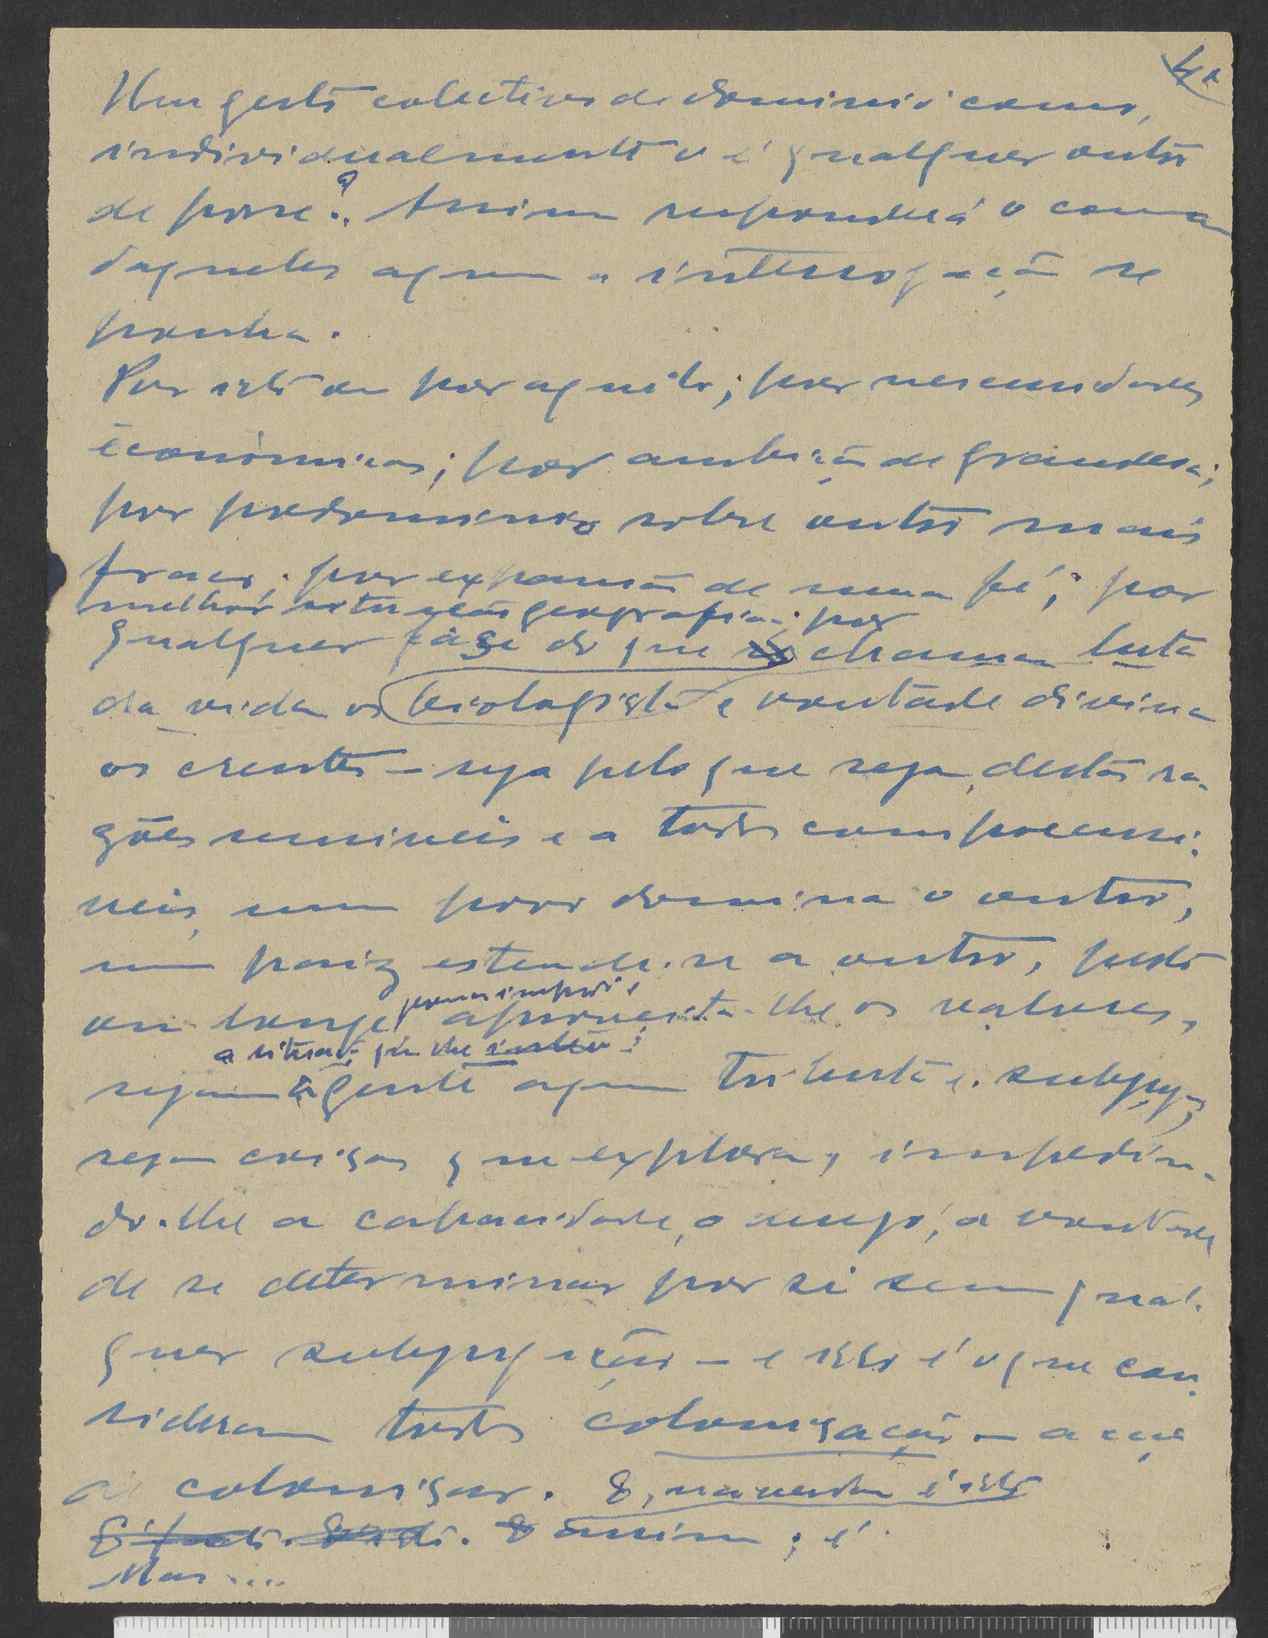 4
Um gesto colectivo de dominio como,
individualmente o é qualquer outro
de posse? Assim responderá o comum
daqueles a quem a interrogação se
ponha.
Por isto ou por aquilo; por necessidades
económicas; por ambição de grandesa;
por predominio sobre outro mais
fraco; por expansão de uma fé; por
melhor situação geografica; por
qualquer fase do que chamam luta
da vida os biologistas e vontade divina
os crentes — seja pelo que seja, destas ra-
zões sensiveis e a todos compreensi-
veis, um povo domina o outro,
um paiz estende-se a outro, perto
ou longe, aproveita-lhe os valores,
a situação
sejam gente a quem tributa e subjuga,
sejam coisas que explora, impedin-
do-lhe a capacidade, o desejo, a vontade
de se determinar por si sem qual-
quer subjugação — e isso é o que con-
sideram todos colonisação — a acção
de colonisar. E, na verdade é isto
assim; é
Mas ....